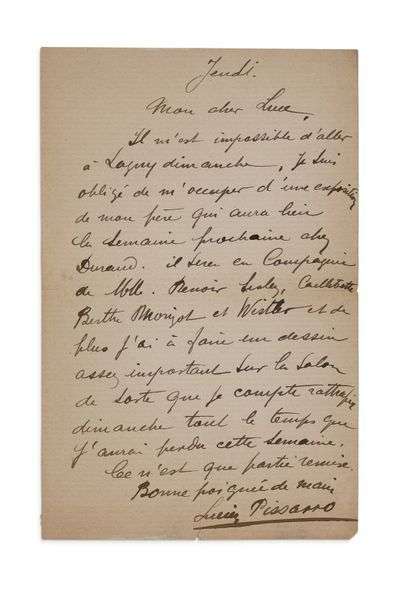 Jeudi.
Mon cher Luce,
Il m'est impossible d'aller
à Lagny dimanche, je suis
obligé de m'occuper d'une exposition
de mon père qui aura lieu
la semaine prochaine chez
Durand. il sera en Compagnie
de Renoir Sisley, Caillebotte
Berthe Morizot et Wistler et de
plus j'ai à faire un dessin
assez important sur le Salon
de sorte que je compte rattraper
dimanche tout le temps que
j'aurai perdu cette semaine.
Ce n'est que partie remise.
Bonne poignée de main
Lucien Pissarro